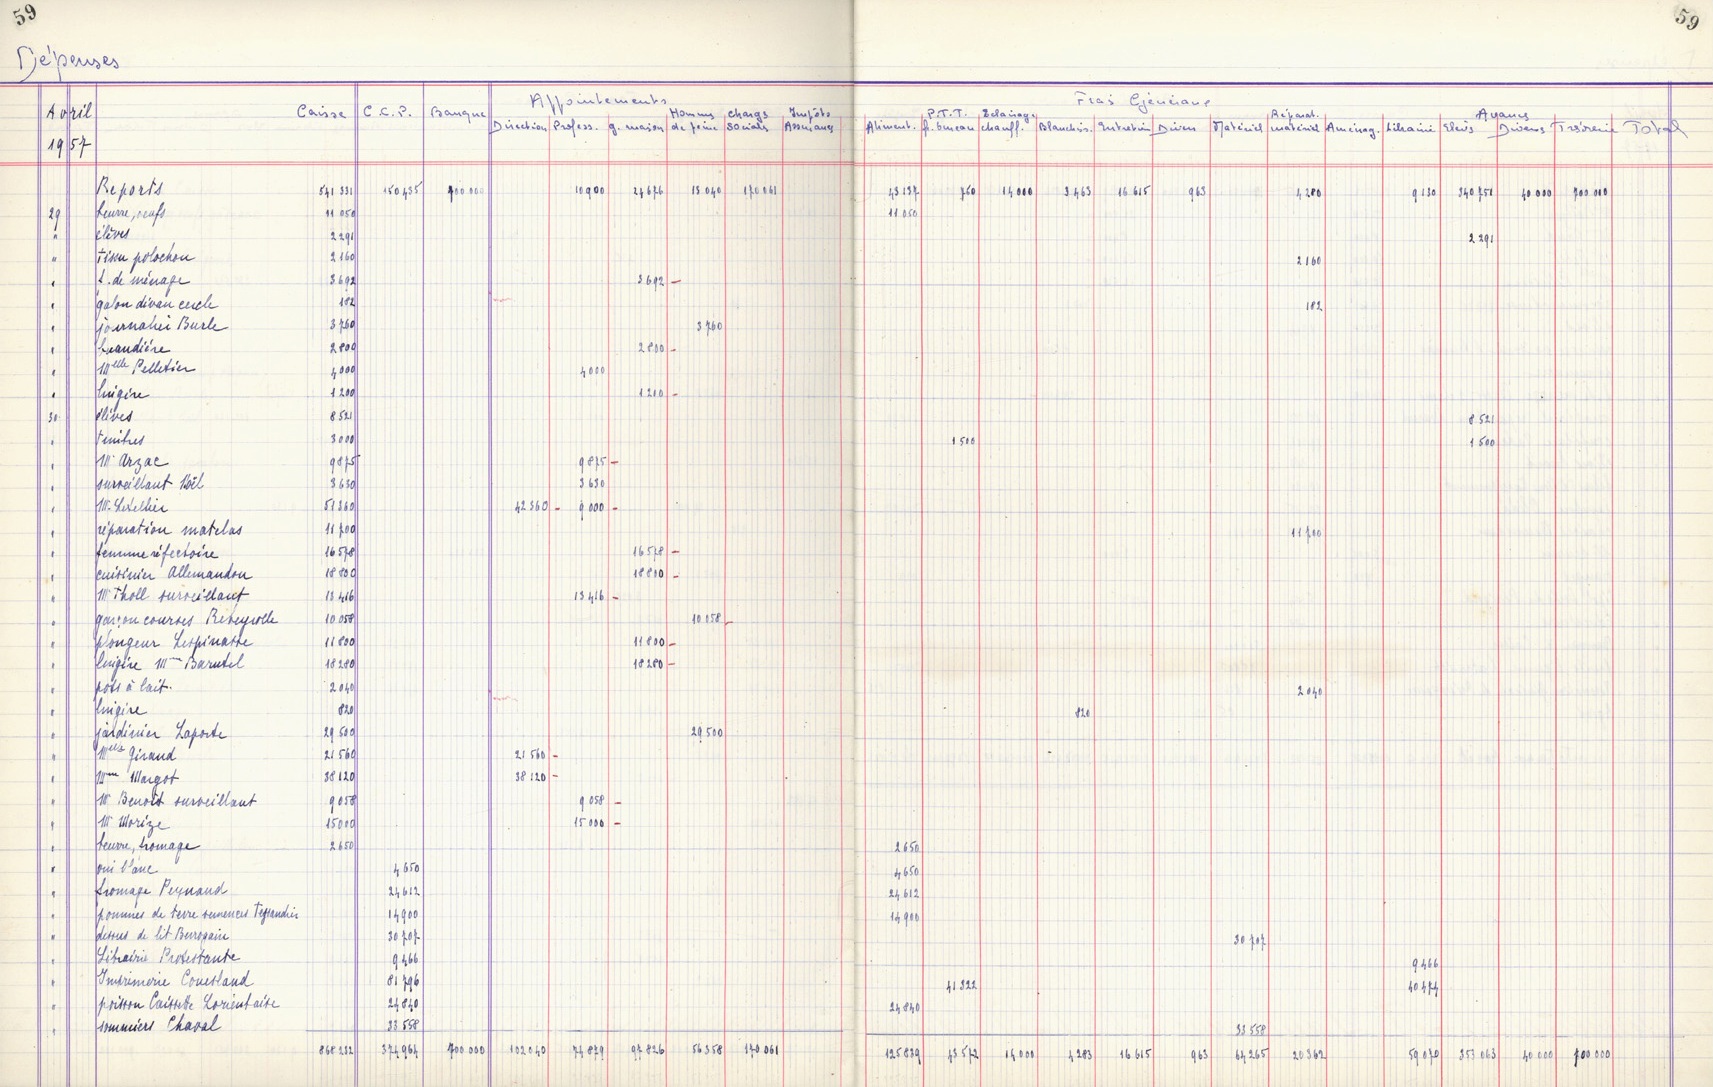 59
59
Dépenses
Avril
1957
Caisse C.C.P. Banque
Appointements
Direction Profess. g. maison Hommes de peine charges sociales Impôts Assurances
Frais Généraux
Aliment. P.T.T. f. bureau Eclairage chauff. Blanchis. Entretien Divers Matériel Réparat. matériel Aménag. Librairie
Avances
Elèves Divers Trésorerie Total
Reports 541 331 150 435 700.000 10 900 24 676 13 040 170 061 43 137 750 14 000 3 463 16 615 963 4 280 9 130 340 751 40 000 700 000
29 beurre, oeufs 11 050 11 050
" élèves 2 291 2 291
" tissu polochon 2 160 2 160
" f. de ménage 3 692 3 692
" galon divan cercle 182 182
" journalier Burle 3 760 3 760
" buandière 2 800 2 800
" Melle Pelletier 4 000 4 000
" lingère 1 200 1 200
30 élèves 8 521 8 521
" timbres 3 000 1 500 1 500
" Mr Arzac 9 875 9 875
" surveillant Noël 3 630 3 630
" Mr Letellier 51 360 42 360 9 000
" réparation matelas 11 700 11 700
" femme réfectoire 16 578 16 578
" cuisinier Allemandou 18 800 18 800
" Mr Tholl surveillant 13 416 13 416
" garçon courses Rebeyrolle 10 058 10 058
" plongeur Lespinasse 11 800 11 800
" lingère Mme Barutel 18 280 18 280
" pots à lait. 2 040 2 040
" lingère 820 820
" jardinier Laporte 29 500 29 500
" Melle Giraud 21 560 21 560
" Mme Margot 38 120 38 120
" Mr Benoit surveillant 9 058 9 058
" Mr Morize 15 000 15 000
" beurre, fromage 2 650 2 650
" vin blanc 4 650 4 650
" fromage Peynaud 24 612 24 612
" pommes de terre semences Teyssandier 14 900 14 900
" dessus de lit Berrogain 30 707 30 707
" Librairie Protestante 9 466 9 466
" Imprimerie Couesland 81 796 41 322 40 474
" poisson Caissette Lorientaise 24 840 24 840
" sommiers Chaval 33 558 33 558
868 232 374 964 700 000 102 040 74 879 97 826 56 358 170 061 125 839 43 572 14 000 4 283 16 615 963 64 265 20 362 59 070 353 063 40 000 700 000